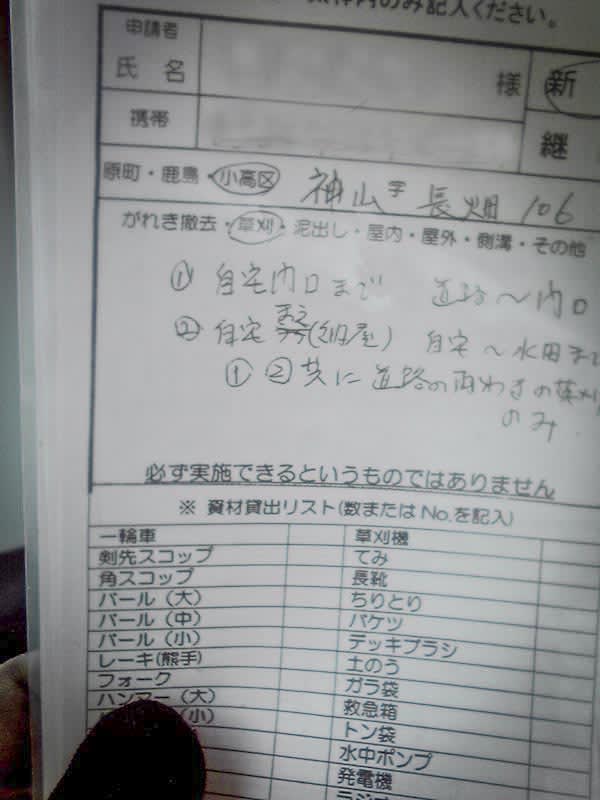 のみ記入ください。
申請者
氏 名
様
新
携帯
継
原町・鹿島・小高区 神山字長畑106
がれき撤去・草刈・泥出し・屋内・屋外・側溝・その他
① 自宅内口まで 道路〜内口
② 自宅 まえ(納屋) 自宅〜水田まで
①②共に道路の両わきの草刈
のみ.
必ず実施できるというものではありません
※ 資材貸出リスト(数またはNo.を記入)
一輪車 草刈機
剣先スコップ てみ
角スコップ 長靴
バール(大) ちりとり
バール(中) バケツ
バール(小) デッキブラシ
レーキ(熊手) 土のう
フォーク ガラ袋
ハンマー(大) 救急箱
(小) トン袋
水中ポンプ
発電機